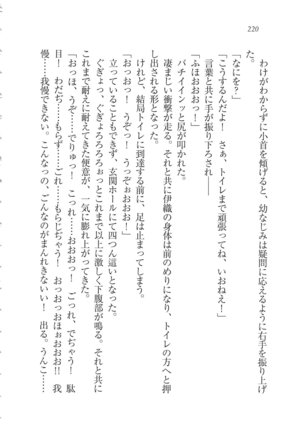 220
わけがわからずに小首を傾げると、幼なじみは疑問に応えるように右手を振り上げ
た。
「なにを？」
「こうするんだよ！　さぁ、トイレまで頑張ってね、いおねえ！」
言葉と共に手が振り下ろされ――
「ふほおおおっ！」
バチイインッと尻が叩かれた。
凄まじい衝撃が走る。それと共に伊織の身体は前のめりになり、トイレの方へと押
し出される形となった。
「おっ！　おっ！　うぞっ！　うっぞぉぉおおおっ！」
けれど、結局トイレに到達する前に、足は止まってしまう。
動くことができず、玄関ホールにて四つん這いとなった。
ぐぎょっ、ぐぎょろろろろぉっとこれまで以上に激しく下腹部が鳴る。それと共に
これまで耐えに耐えてきた便意が、一気に膨れ上がってきた。
「おっほ、うぞ……でりゅっ！　これっ……おおおっ！　ごっれ、でちゃう！　駄
目！　わだぢ……もらず……ごれ……もらじぢゃう！　おっおっおほぉぉおお!!　我
慢……我慢できない。こんなっの、どんなのがまんれきないい！　出る。うんこ……